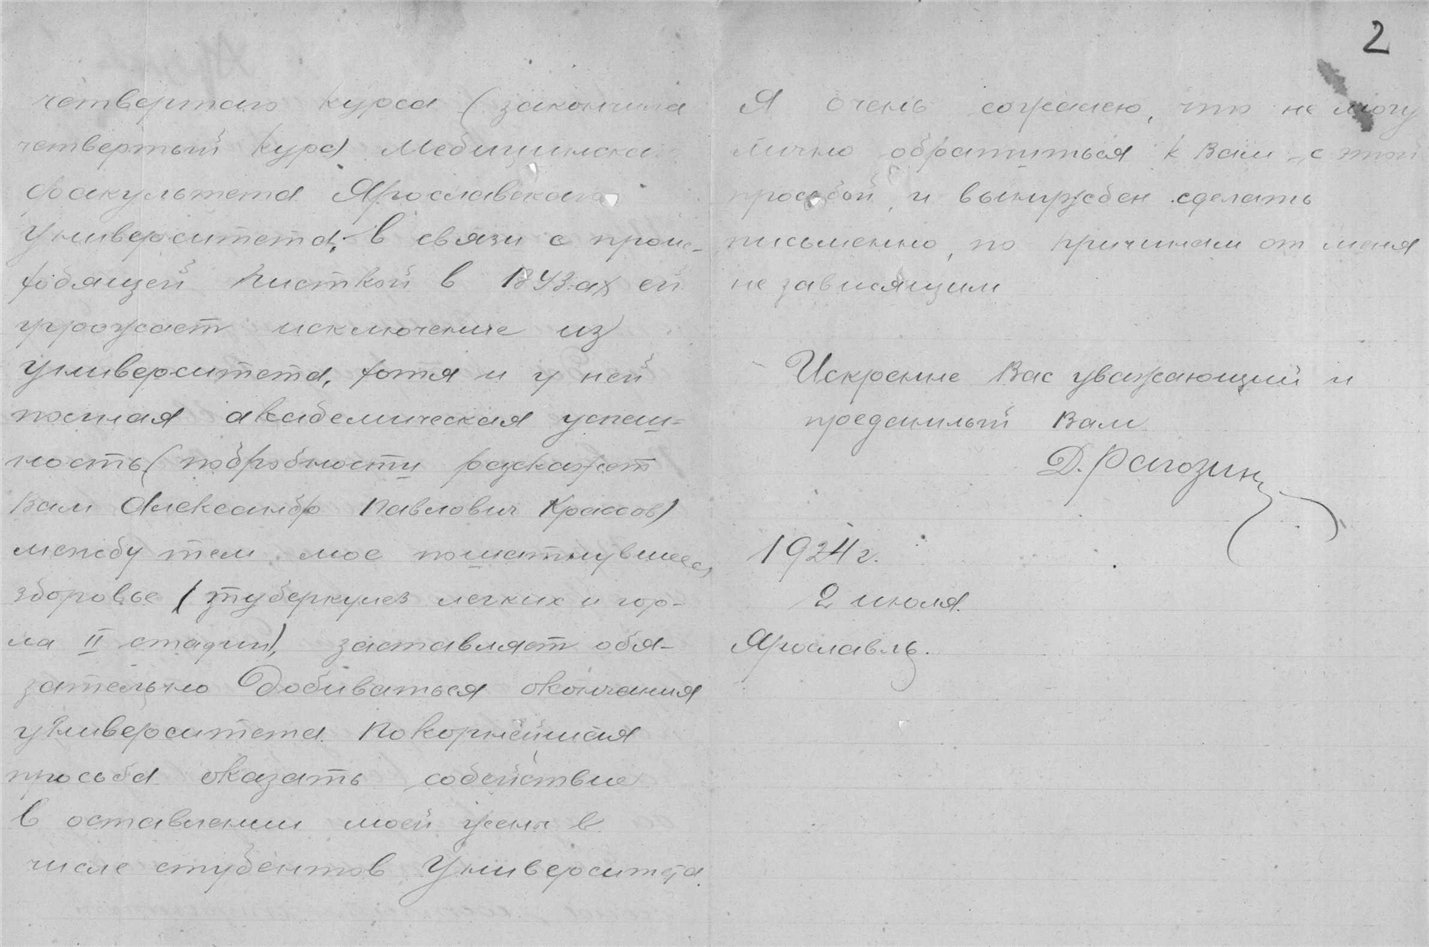 2
четвертого курса (закончила
четвертый курс) Медицинско
факультета Ярославского
Университета, в связи с проис-
ходящей чисткой в ВУЗ-ах ей
угрожает исключение из
Университета, хотя и у ней
полная академическая успеш-
ность (подробности разскажет
Вам Александр Павлович Крассов)
между тем, мое пошатнувшееся
здоровье (туберкулез легких и гор-
ла II стадии), заставляет обя-
зательно добиваться окончания
университета. Покорнейшая
просьба оказать содействие
в оставлении моей жены в
числе студентов Университета.
Я очень сожалею, что не могу
лично обратиться к Вам с этой
просьбой, и вынужден сделать
письменно, по причинам от меня
не зависящим
Искренне Вас уважающий и
преданный Вам
Д. Рагозин
1924 г.
2 июля.
Ярославль.